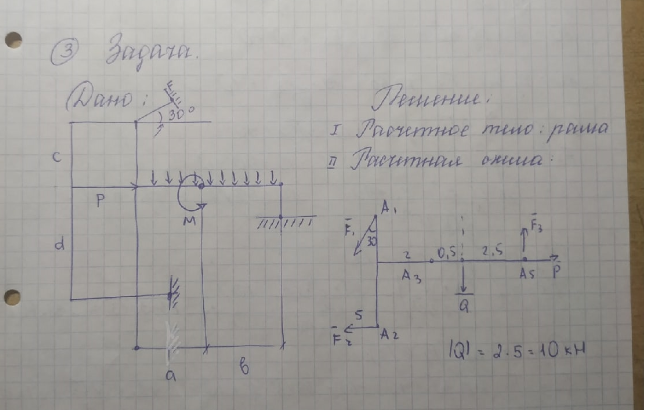 3 Задача.
Дано:
30°
c
P
M
d
a
b
Решение:
I Расчетное тело: рама
II Расчетная схема:
A₁
F̄₁
30
2
0,5
2,5
F̄₃
A₃
A₅
P̄
Q̄
5
F̄₂
A₂
|Q| = 2·5 = 10 кН